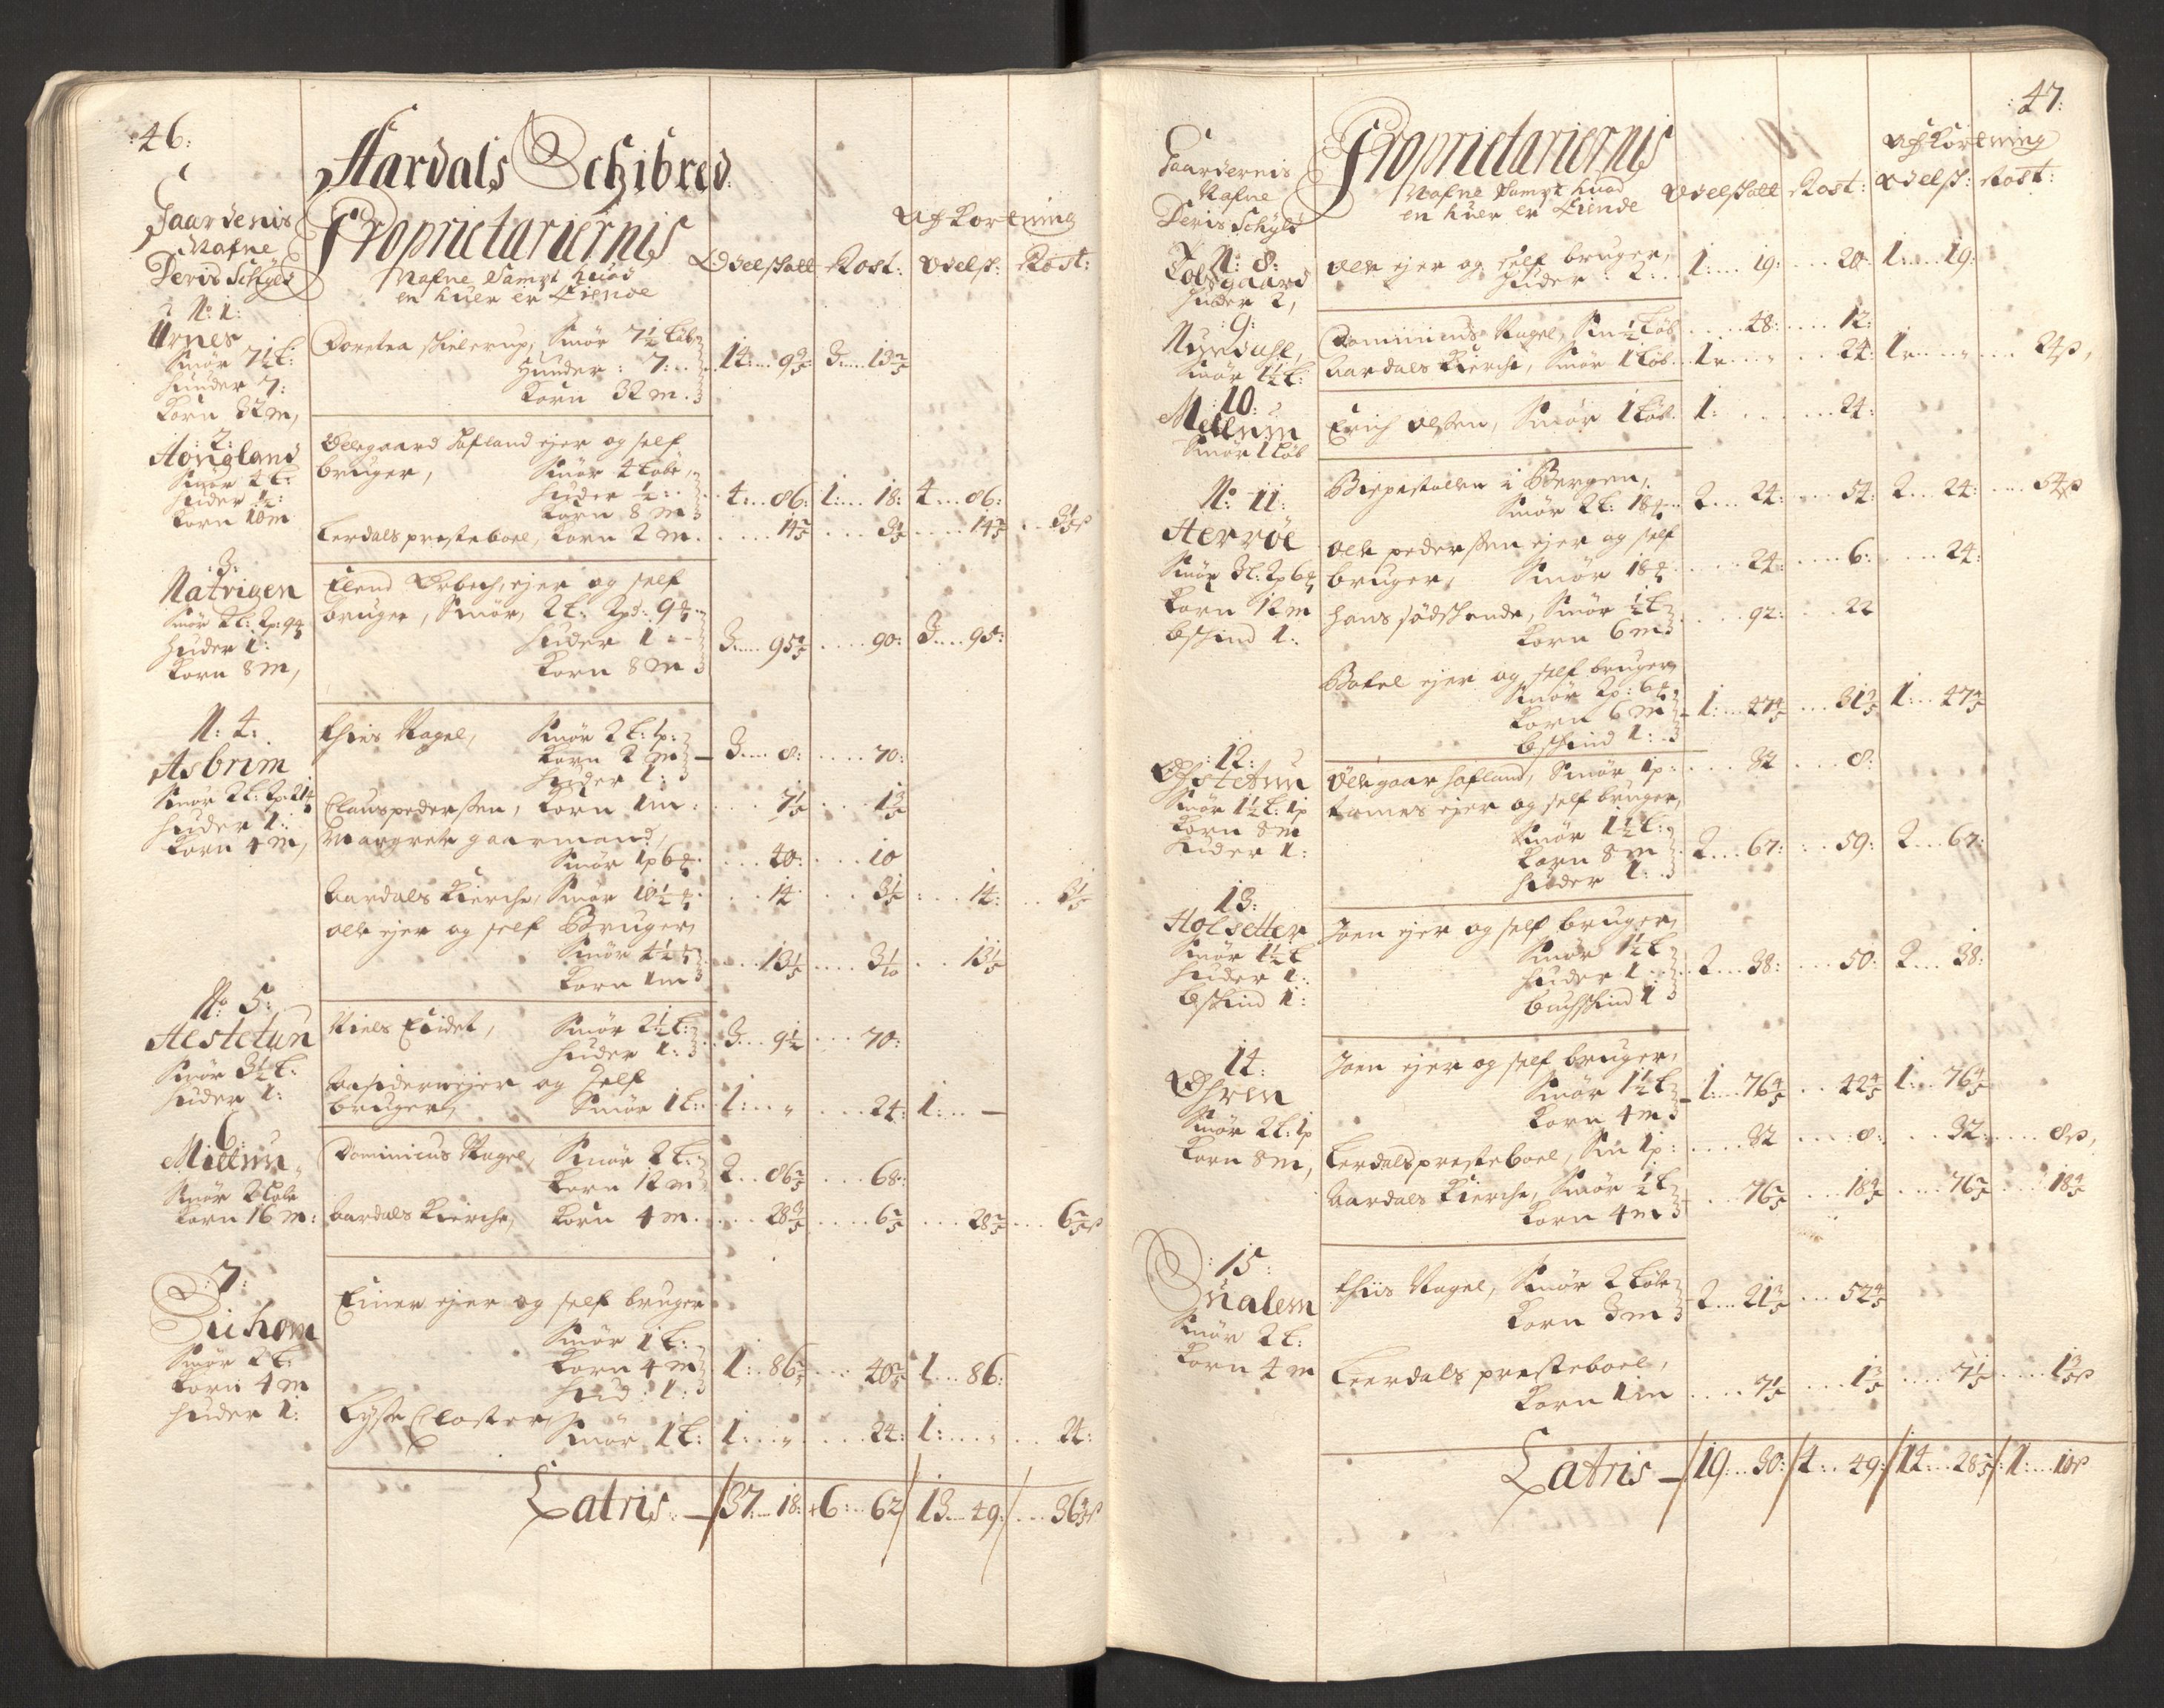 46:
Aardals Schibred
Gaardenis
Nafne
Deris Schyld
Proprietariernis
Nafne Sampt huad
en huer er Eiende
Afkortning
Odelschatt Rost: Odelsch: Rost:
No 1:
Urnes
Smør 7½ L:
Huuder 7:
Korn 32 m,
Doretea Schielerup, Smør 7½ Løb
Hunder: 7:
Korn 32 m.
14: 9 3/5 3: 13 2/5
:2:
Hougland
Smør 4 L:
Huder ½:
Korn 10 m
Ollegaard Hafland ejer og self
bruger, Smør 4 Løbe,
Huder ½:
Korn 8 m
4: 86: 1: 18: 4: 86:
Lerdals presteboel, Korn 2 m. 14 2/5 3 1/5 14 2/5 3 1/5 s
:3:
Natrigen
Smør 2 L: 2 p: 9 ♃
Huder 1:
Korn 8 m,
Elend Orbech, ejer og self
bruger, Smør, 2 L: 2 pd: 9 ♃
Huder 1:
Korn 8 m
3: 95 2/5 90: 3: 95:
N: 4:
Asbrim
Smør 2 L: 2 p: 21 ♃
Huder 1:
Korn 4 m,
Thies Nagel, Smør 2 L: 1 p:
Korn 2 m
Huder 1:
3: 8: 70:
Claus pedersen, Korn 1 m: 7 1/5 1 3/5
Margrete gaarmand,
Smør 1 p 6 ♃ 40: 10
Aardals Kierche, Smør 10½ ♃ 14 3½ 14: 3½
Ole ejer og self Bruger,
Smør 4½ ♃
Korn 1 m
13 1/5 3 1/10 13 1/5
No 5:
Aestetun
Smør 3½ L:
Huder 1:
Niels Eidet, Smør 2½ L:
Huder 1:
3: 9½ 70:
Besidern ejer og Self
bruger, Smør 1 L: 1: „ 24: 1: —
6
Mittun
Smør 2 Løbe
Korn 16 m:
Dominicus Nagel, Smør 2 L:
Korn 12 m
2: 86 2/5 68:
Aardals Kierche, Korn 4 m. 28 3/5 6 2/5 28 2/5 6 2/5 s
:7:
Siehom
Smør 2 L:
Korn 4 m
Huder 1:
Einer ejer og self bruger
Smør 1 L:
Korn 4 m
Hud: 1:
1: 86 2/5 40 2/5 1: 86:
Lyse Closter, Smør 1 L: 1: „ 24: 1: „ 24:
Latris — 37: 18: 6: 62 13: 49: 36 s
:47:
Gaardernis
Nafne
Deris Schyld
Proprietariernis
Nafne Sampt huad
en huer er Eiende
Afkortning
Odelschatt Rost: Odelsch: Rost:
N: 8:
Huder 2,
Ole ejer og self bruger,
Huder: 2 1: 19: 20: 1: 19:
:9:
Nundahl,
Smør 1½ L:
Dominicus Nagel, Sm ½ Løb 48: 12:
Aardals Kierche, Smør 1 Løb. 1: „ 24: 1: „ 24 s,
:10:
Mellum
Smør 1 Løb
Erich Olsen, Smør 1 Løb. 1: 24:
No 11:
Herrøe
Smør 3 L: 2 p 6 ♃
Korn 12 m
bschind 1:
Bispestolen i Bergen,
Smør 2 L: 18 ♃ 2: 24: 54: 2: 24: 54 s
Ole pedersen ejer og self
bruger, Smør 18 ♃ 24: 6: 24:
Hans sødschende, Smør ½ L
Korn 6 m
92: 22
Botel ejer og self bruger
Smør 2 p: 6 ♃
Korn 6 m
bschind 1:
1: 47 4/5 31 3/5 1: 47 4/5
:12:
Øfstetun
Smør 1½ L: 1 p
Korn 8 m
Huder 1:
Ollegaar Hafland, Smør 1 p: 32 8:
Tomes ejer og self bruger,
Smør 1½ L:
Korn 8 m
Huder 1:
2: 67: 59: 2: 67:
13:
Hofsetter
Smør 1½ L
Huder 1:
bschind 1:
Joen ejer og self bruger,
Smør 1½ L
Huder 1
buchschind 1
2: 38: 50: 2: 38:
14:
Øhren
Smør 2 L: 1 p
Korn 8 m,
Joen ejer og self bruger,
Smør 1½ L
Korn 4 m
1: 76 4/5 42 4/5 1: 76 4/5
Lerdals presteboel, Sm 1 p: 32 8: 32: 8 s,
Aardals Kierche, Smør ½ L
Korn 4 m
76 2/5 18 2/5 76 2/5 18 2/5
:15:
Qualem
Smør 2 L:
Korn 4 m
Thiis Nagel, Smør 2 Løbe
Korn 3 m
2: 21 3/5 52 4/5
Leerdals presteboel,
Korn 1 m 7 1/5 1 3/5 7 1/5 1 3/5 s
Latris — 19: 30: 4: 49: 14: 28 1: 10 s